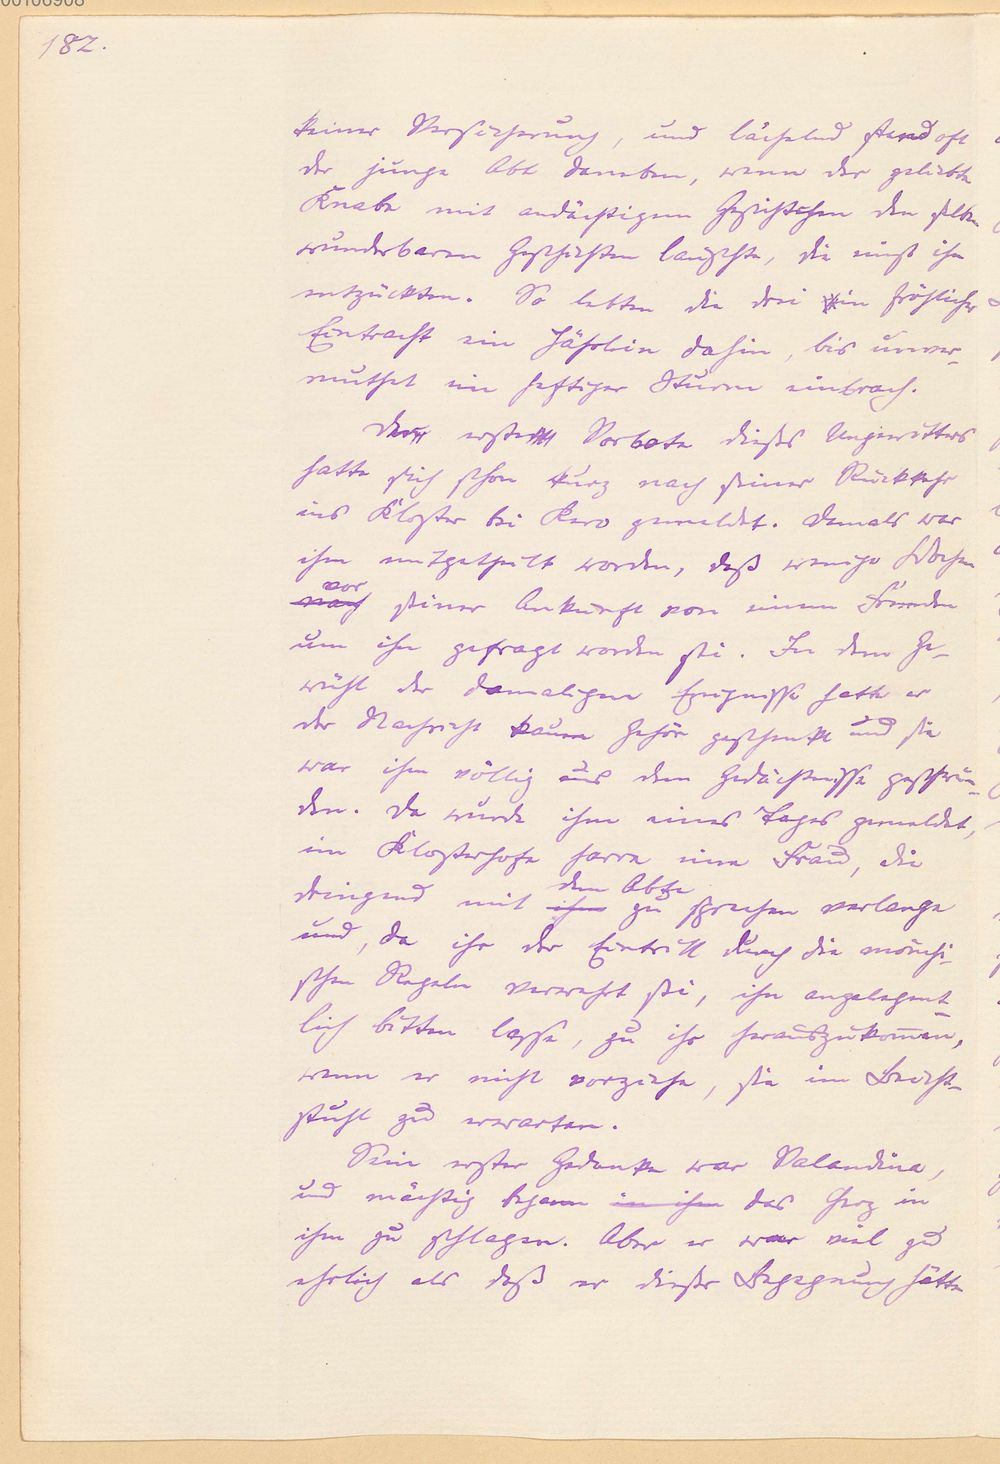 00106908
182.
keiner Versicherung, und lächelnd stand oft
der junge Abt daneben, wenn der geliebte
Knabe mit andächtigem Gesichtchen den selben
wunderbaren Geschichten lauschte, die einst ihn
entzückten. So lebten die drei in fröhlicher
Eintracht ein Jährlein dahin, bis unver-
muthet ein heftiger Sturm einbrach.
Der erste Vorbote dieses Ungewitters
hatte sich schon kurz nach seiner Rückkehr
ins Kloster bei Kero gemeldet. Damals war
ihm mitgetheilt worden, daß wenige Wochen
vor
nach seiner Ankunft von einem Fremden
um ihn gefragt worden sei. In dem Ge-
wühl der damaligen Ereignisse hatte er
der Nachricht kaum Gehör geschenkt und sie
war ihm völlig aus dem Gedächtnisse geschwun-
den. Da wurde ihm eines Tages gemeldet,
im Klosterhofe harre eine Frau, die
dem Abte
dringend mit ihm zu sprechen verlange
und, da ihr der Eintritt durch die mönchi-
schen Regeln verwehrt sei, ihn angelegent-
lich bitten lasse, zu ihr herauszukommen,
wenn er nicht vorziehe, sie im Beicht-
stuhl zu erwarten.
Sein erster Gedanke war Valandina,
und mächtig begann in ihm das Herz in
ihm zu schlagen. Aber er war viel zu
ehrlich als daß er dieser Begegnung hätte